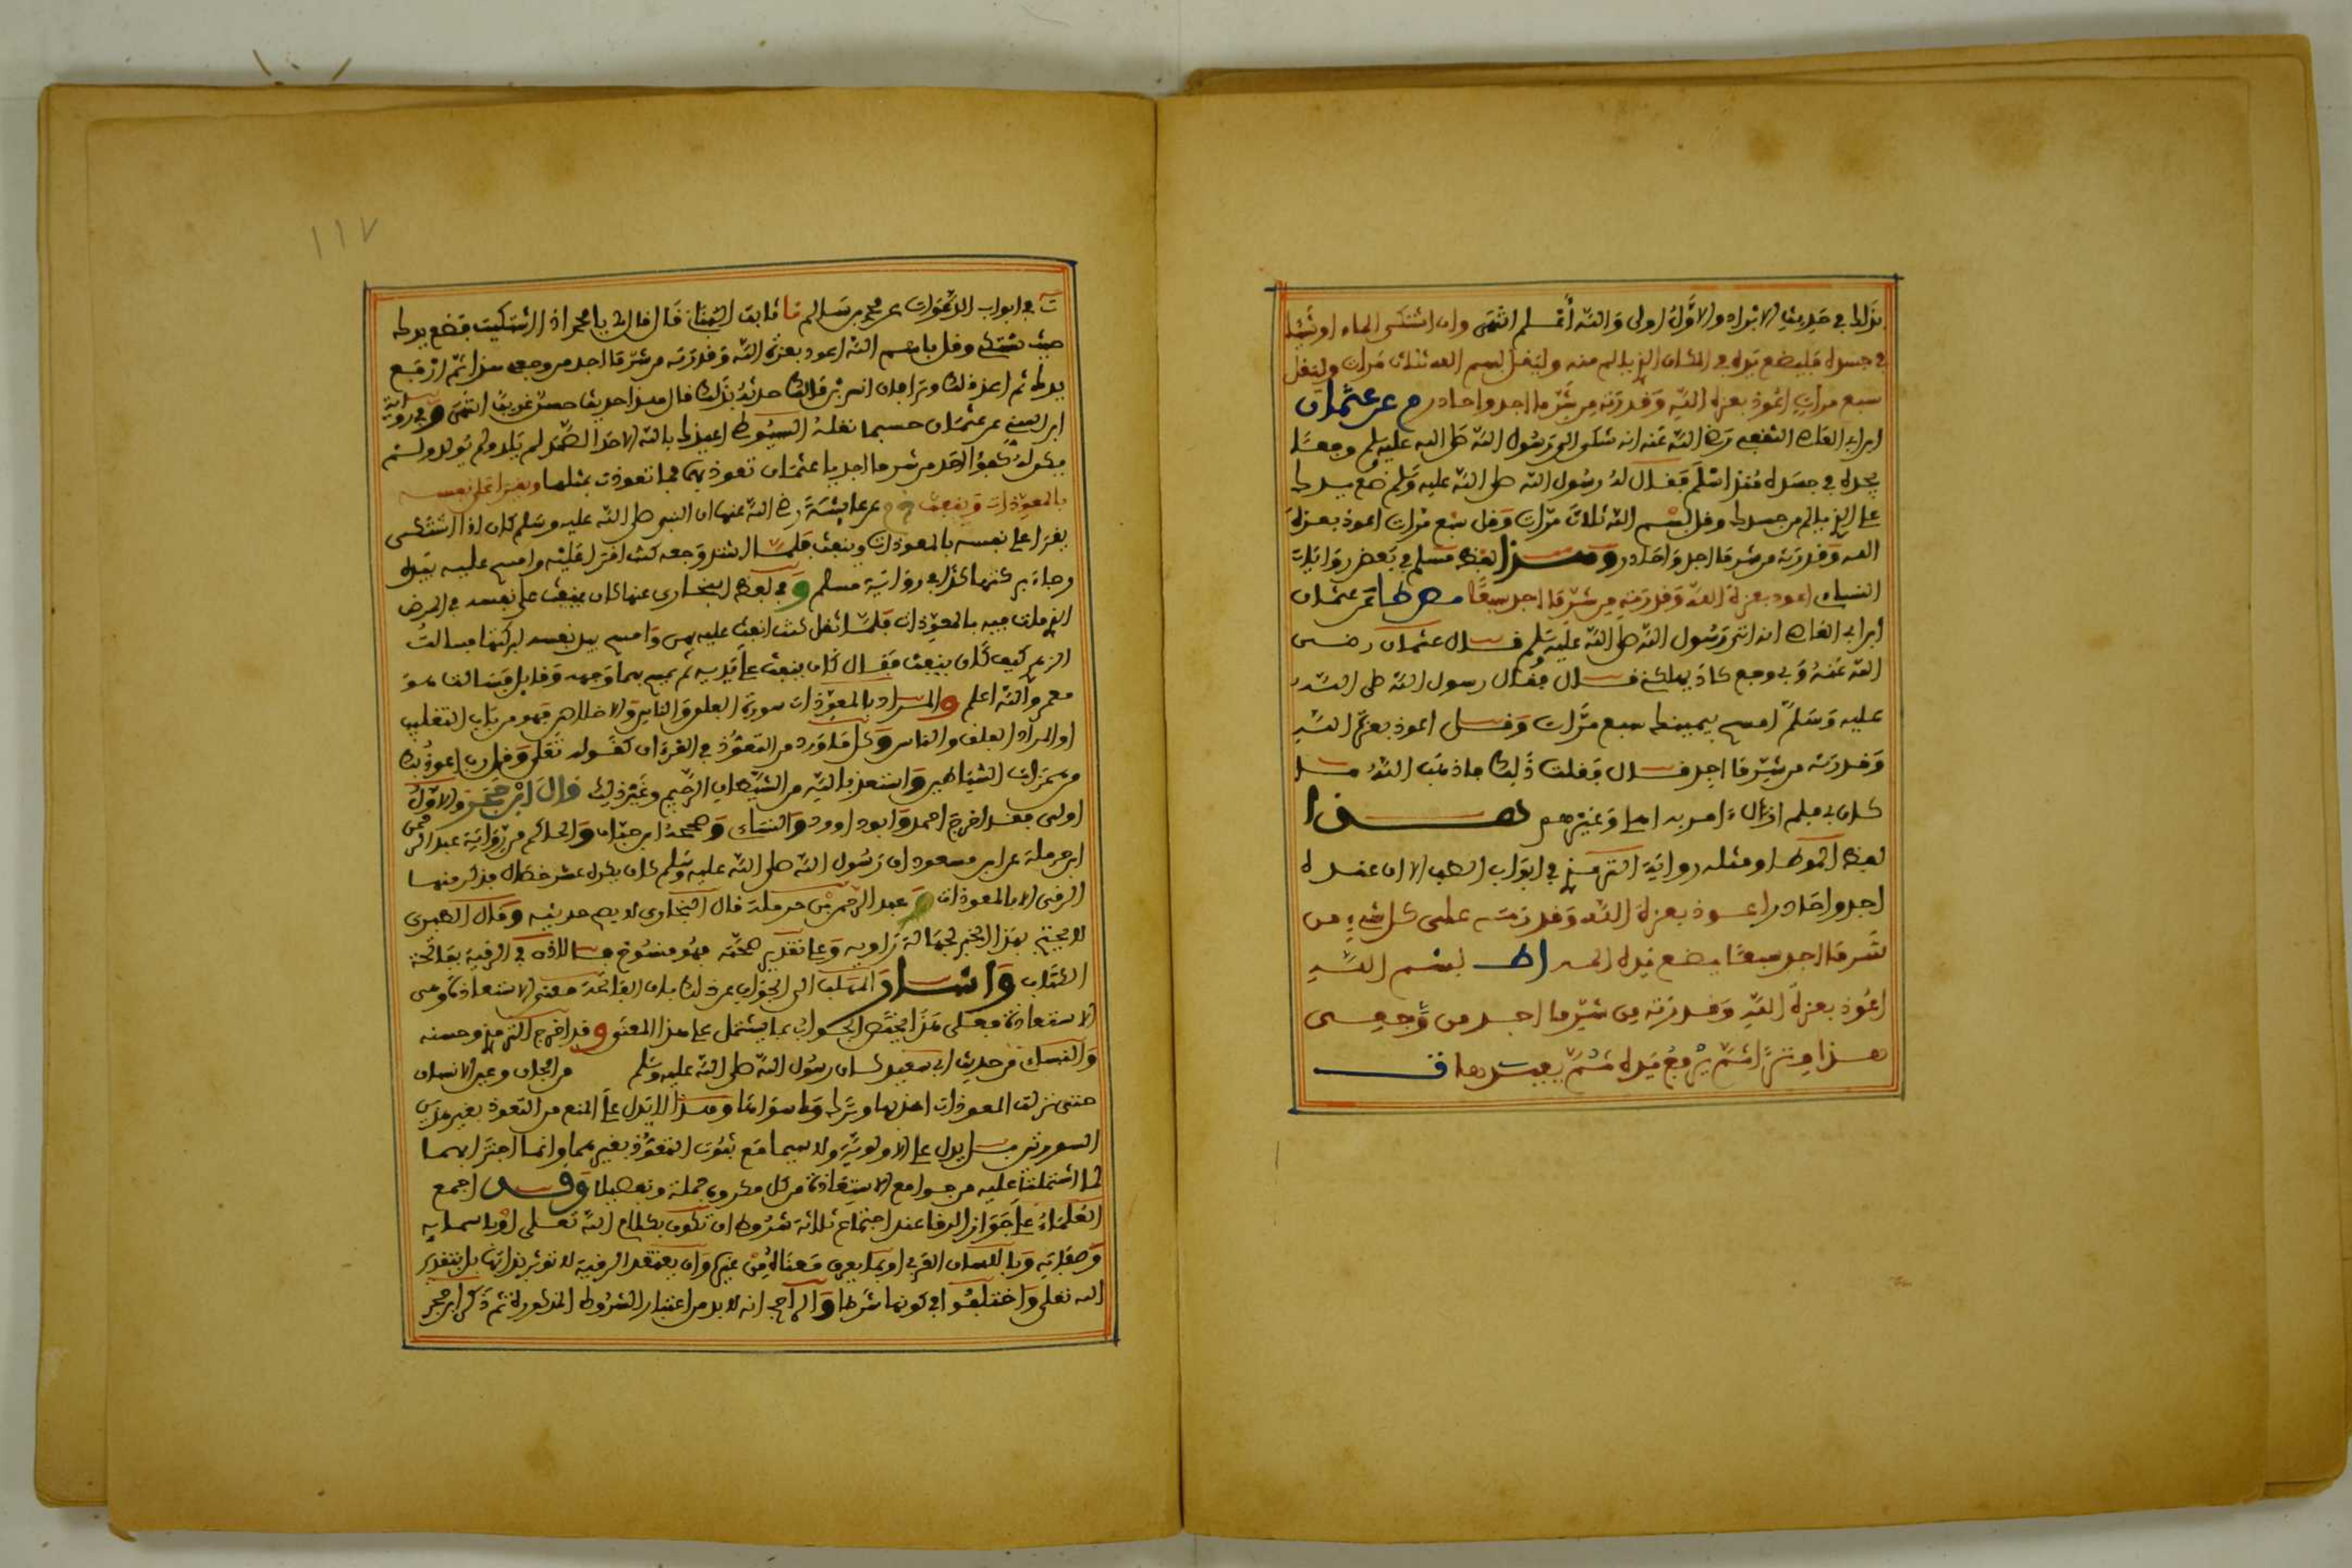 بذلك في حديث الابراد والاول اولى والله أعلم انتهى وان اشتكى الماء او شيئا
في جسده فليضع يده في المكان الذي يالم منه وليقل بسم الله ثلاث مرات وليقل
سبع مرات اعوذ بعزة الله وقدرته من شر ما اجد واحاذر م عن عثمان
ابن ابي العاص الثقفي رضي الله عنه انه شكى الى رسول الله صلى الله عليه وسلم وجعا
يجده في جسده منذ اسلم فقال له رسول الله صلى الله عليه وسلم ضع يدك
على الذي يالم من جسدك وقل بسم الله ثلاث مرات وقل سبع مرات اعوذ بعزة
الله وقدرته من شر ما اجد واحاذر وهذا لفظ مسلم في بعض روايات
النساءي اعوذ بعزة الله وقدرته من شر ما اجد سبعا مص طا عن عثمان
ابن ابي العاص انه اتى رسول الله صلى الله عليه وسلم قال عثمان رضي
الله عنه وبي وجع كاد يهلكني قال فقال رسول الله صلى الله
عليه وسلم امسح بيمينك سبع مرات وقل اعوذ بعزة الله
وقدرته من شر ما اجد قال فقلت ذلك فاذهب الله ما
كان بي فلم ازل ءامر به اهلي وغيرهم هذا
لفظ الموطا ومثله رواية الترمذي في ابواب الطب الا ان عنده
اجد واحاذر اعوذ بعزة الله وقدرته على كل شيء من
شر ما اجد سبعا يضع يده الم اط بسم الله
اعوذ بعزة الله وقدرته من شر ما اجد من وجعي
هذا وترا ثم يرفع يده ثم يعيدها ت
ت في ابواب الدعوات عن محمد بن سالم نا ثابت البناني قال قال لي يا محمد اذا اشتكيت فضع يدك
حيث تشتكي وقل باسم الله اعوذ بعزة الله وقدرته من شر ما اجد من وجعي هذا ثم ارفع
يدك ثم اعد ذلك وترا فان انس بن مالك حدثه بذلك قال هذا حديث حسن غريب انتهى وفي رواية
ابن السني عن عثمان حسبما نقله السيوطي اعيذك بالله الاحد الصمد لم يلد ولم يولد ولم
يكن له كفؤا احد من شر ما اجد يا عثمان تعوذ بها فما تعوذت بمثلها ويقرا على نفسه
بالمعوذات وينفث خ م عن عايشة رضي الله عنها ان النبي صلى الله عليه وسلم كان اذا اشتكى
يقرا على نفسه بالمعوذات وينفث فلما اشتد وجعه كنت اقرا عليه وامسح عليه بيده
رجاء بركتها كذا في رواية مسلم وفي لفظ البخاري عنها كان ينفث على نفسه في المرض
الذي مات فيه بالمعوذات فلما ثقل كنت انفث عليه بهن وامسح بيد نفسه لبركتها فسالت
الزهري كيف كان ينفث فقال كان ينفث على يديه ثم يمسح بهما وجهه وقايل فسالت هو
معمر والله اعلم والمراد بالمعوذات سورة الفلق والناس والاخلاص فهو من باب التغليب
او المراد الفلق والناس وكل ما ورد من التعوذ في القرءان كقوله تعلى وقل رب اعوذ بك
من همزات الشياطين واستعذ بالله من الشيطان الرجيم وغير ذلك قال ابن حجر والاول
اولى فقد اخرج احمد وابو داوود والنساءي وصححه ابن حبان والحاكم من رواية عبد الرحمن
ابن حرملة عن ابن مسعود ان رسول الله صلى الله عليه وسلم كان يكره عشر خصال فذكر منها
الرقى الا بالمعوذات وعبد الرحمن بن حرملة قال البخاري لا يصح حديثه وقال الطبري
لا يحتج بهذا الخبر لجهالة راويه وعلى تقدير صحته فهو منسوخ بالاذن في الرقية بفاتحة
الكتاب واشار المهلب الى الجواب عن ذلك بان الفاتحة معنى الاستعاذة وهي
الاستعاذة فعلى هذا يختص الجواز بما يشتمل على هذا المعنى وقد اخرج الترمذي وحسنه
والنساءي من حديث ابي سعيد كان رسول الله صلى الله عليه وسلم من الجان وعين الانسان
حتى نزلت المعوذات اخذ بها وترك ما سواها وهذا لا يدل على المنع من التعوذ بغير هاتين
السورتين بل يدل على الاولوية ولا سيما مع ثبوت التعوذ بغيرهما وانما اجتزا بهما
لما اشتملتا عليه من جوامع الاستعاذة من كل مكروه جملة وتفصيلا وقد اجمع
العلماء على جواز الرقا عند اجتماع ثلاثة شروط ان تكون بكلام الله تعلى او باسمايه
وصفاته وباللسان العربي او بما يعرف معناه من غيره وان يعتقد الرقية لا توثر بذاتها بل بتقدير
الله تعلى واختلفوا في كونها شرطا والراجح انه لا بد من اعتبار الشروط المذكورة ثم ذكر ابن حجر
١١٧